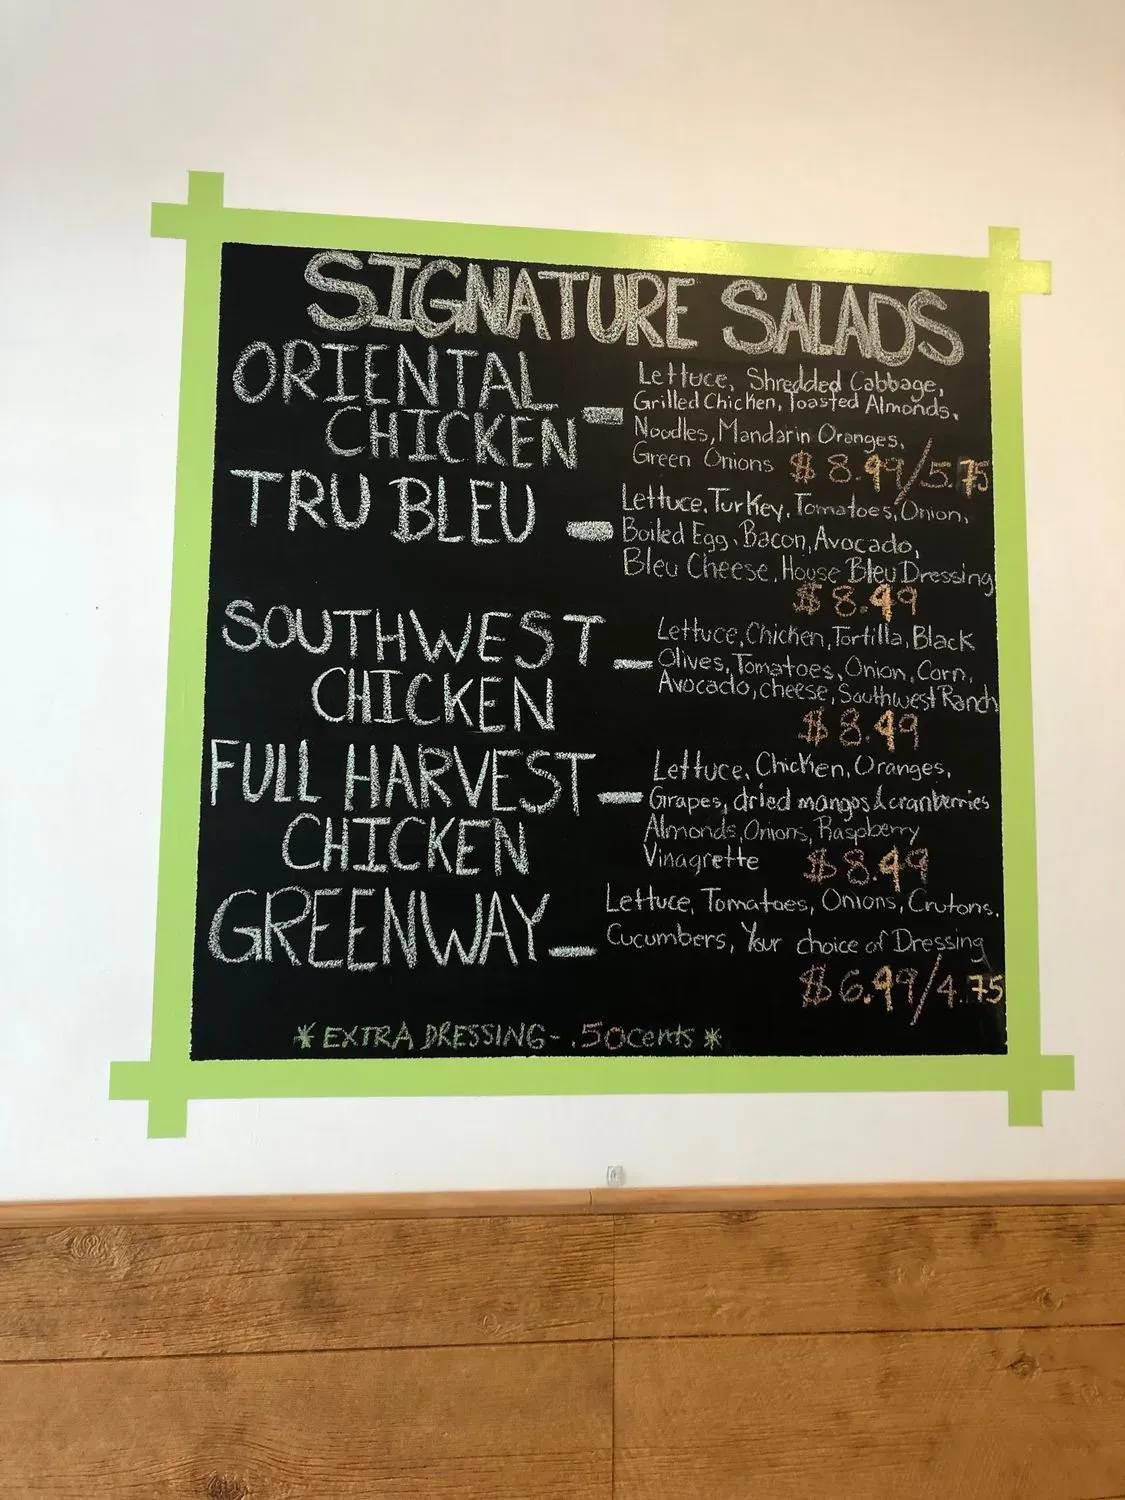 SIGNATURE SALADS
ORIENTAL
CHICKEN
Lettuce, Shredded Cabbage,
Grilled Chicken, Toasted Almonds,
Noodles, Mandarin Oranges,
Green Onions $8.99/5.75
TRU BLEU
Lettuce, Turkey, Tomatoes, Onion,
Boiled Egg, Bacon, Avocado,
Bleu Cheese, House Bleu Dressing
$8.49
SOUTHWEST
CHICKEN
Lettuce, Chicken, Tortilla, Black
Olives, Tomatoes, Onion, Corn,
Avocado, cheese, Southwest Ranch
$8.49
FULL HARVEST
CHICKEN
Lettuce, Chicken, Oranges,
Grapes, dried mangos & cranberries
Almonds, Onions, Raspberry
Vinagrette $8.49
GREENWAY
Lettuce, Tomatoes, Onions, Crutons.
Cucumbers, Your choice of Dressing
$6.99/4.75
* EXTRA DRESSING - .50cents *